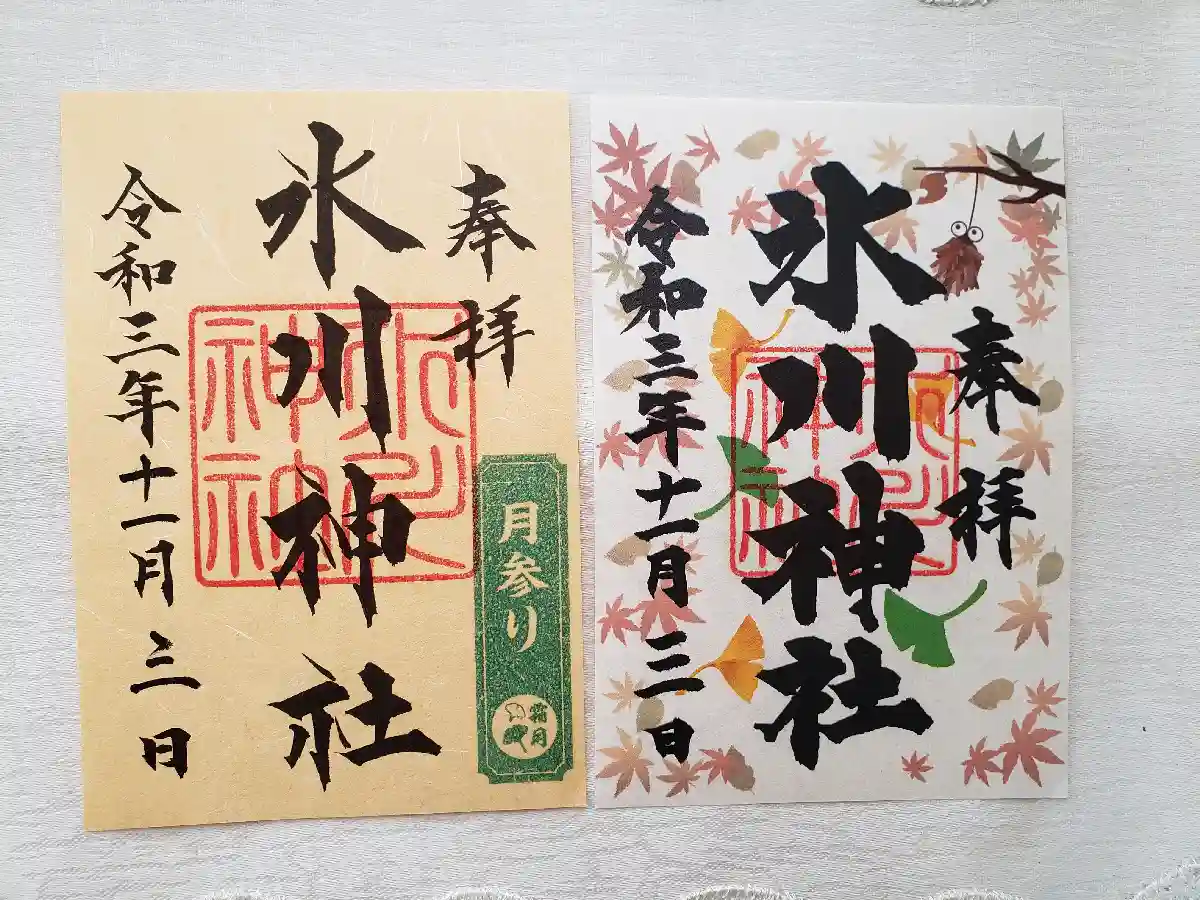 奉拝
氷川神社
氷川神社
令和三年十一月三日
月参り
霜月
奉拝
氷川神社
氷川神社
令和三年十一月三日